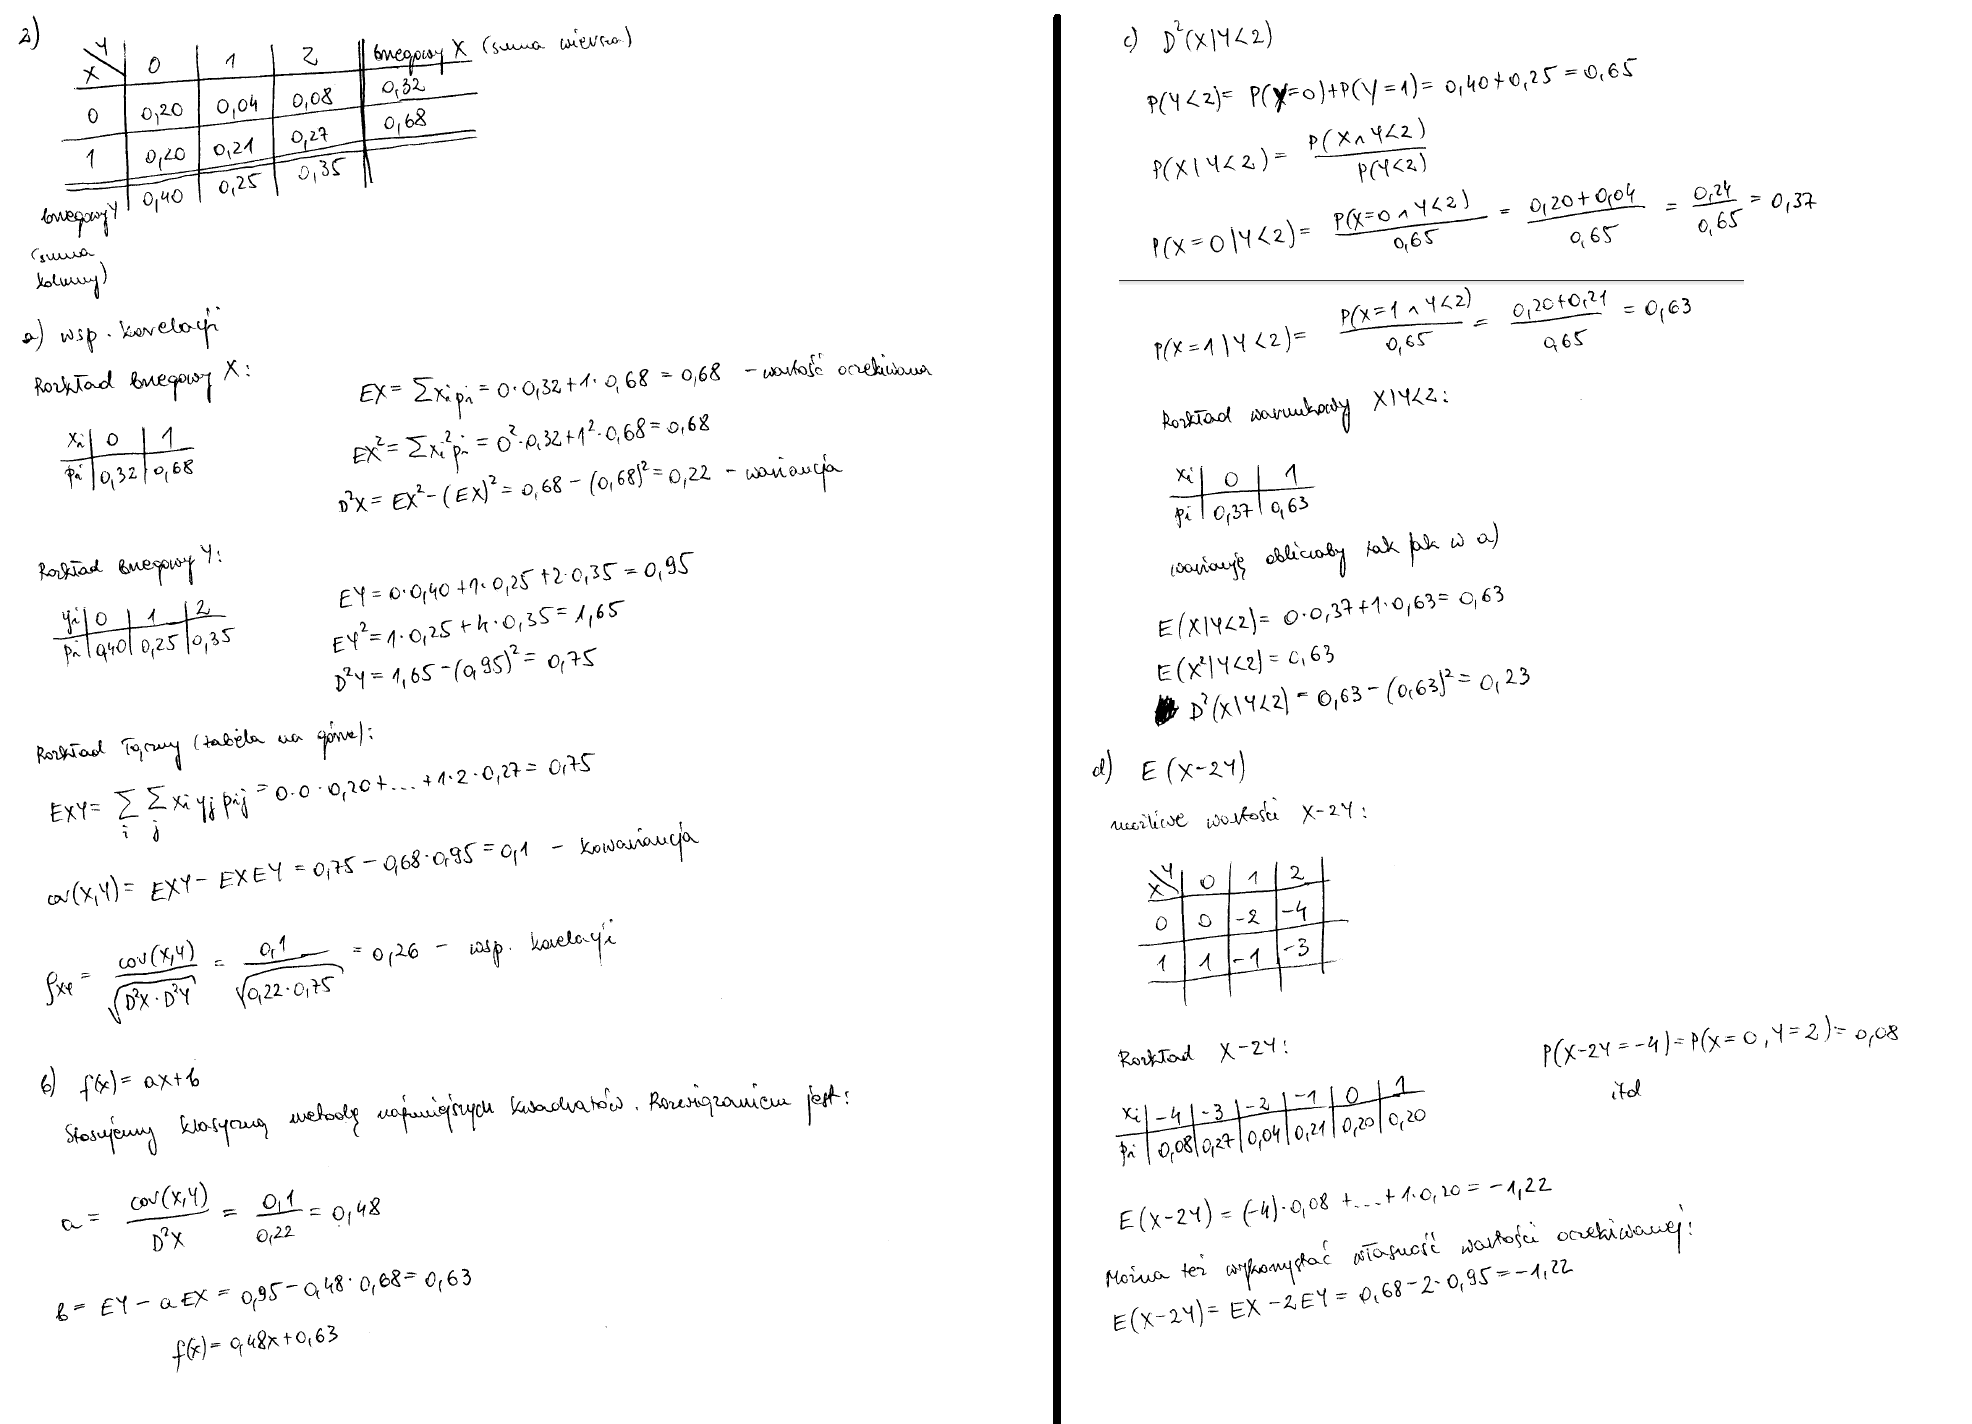 2)
Y
X | 0 | 1 | 2 | brzegowy X (suma wiersza)
0 | 0,20 | 0,04 | 0,08 | 0,32
1 | 0,20 | 0,21 | 0,27 | 0,68
brzegowy Y | 0,40 | 0,25 | 0,35
(suma
kolumny)
a) wsp. korelacji
Rozkład brzegowy X:
xi | 0 | 1
pi | 0,32 | 0,68
EX = ∑xipi = 0·0,32+1·0,68 = 0,68 – wartość oczekiwana
EX² = ∑xi²pi = 0²·0,32+1²·0,68 = 0,68
D²X = EX²-(EX)² = 0,68-(0,68)² = 0,22 – wariancja
Rozkład brzegowy Y:
yi | 0 | 1 | 2
pi | 0,40 | 0,25 | 0,35
EY = 0·0,40+1·0,25+2·0,35 = 0,95
EY² = 1·0,25+4·0,35 = 1,65
D²Y = 1,65-(0,95)² = 0,75
Rozkład łączny (tabela na górze):
EXY = ∑i ∑j xi yj pij = 0·0·0,20+...+1·2·0,27 = 0,75
cov(X,Y) = EXY – EXEY = 0,75 – 0,68·0,95 = 0,1 – kowariancja
ρXY = cov(X,Y) / √(D²X·D²Y) = 0,1 / √(0,22·0,75) = 0,26 – wsp. korelacji
b) f(x) = ax+b
Stosujemy klasyczną metodę najmniejszych kwadratów. Rozwiązaniem jest:
a = cov(X,Y) / D²X = 0,1 / 0,22 = 0,48
b = EY – aEX = 0,95 – 0,48·0,68 = 0,63
f(x) = 0,48x+0,63
c) D²(X|Y<2)
P(Y<2) = P(Y=0)+P(Y=1) = 0,40+0,25 = 0,65
P(X|Y<2) = P(X∧Y<2) / P(Y<2)
P(X=0|Y<2) = P(X=0∧Y<2) / 0,65 = 0,20+0,04 / 0,65 = 0,24 / 0,65 = 0,37
P(X=1|Y<2) = P(X=1∧Y<2) / 0,65 = 0,20+0,21 / 0,65 = 0,63
Rozkład warunkowy X|Y<2:
xi | 0 | 1
pi | 0,37 | 0,63
wariancję obliczoby tak jak w a)
E(X|Y<2) = 0·0,37+1·0,63 = 0,63
E(X²|Y<2) = 0,63
D²(X|Y<2) = 0,63-(0,63)² = 0,23
d) E(X-2Y)
możliwe wartości X-2Y:
Y
X | 0 | 1 | 2
0 | 0 | -2 | -4
1 | 1 | -1 | -3
Rozkład X-2Y:
xi | -4 | -3 | -2 | -1 | 0 | 1
pi | 0,08 | 0,27 | 0,04 | 0,21 | 0,20 | 0,20
P(X-2Y=-4) = P(X=0, Y=2) = 0,08
itd
E(X-2Y) = (-4)·0,08+...+1·0,20 = -1,22
Można też wykorzystać własność wartości oczekiwanej:
E(X-2Y) = EX-2EY = 0,68-2·0,95 = -1,22